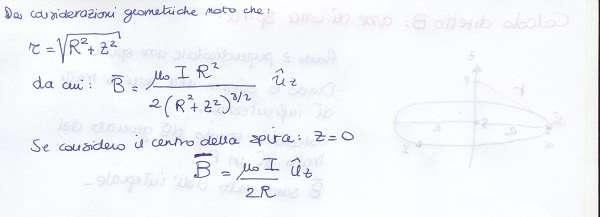 Da considerazioni geometriche noto che:
r = √(R² + z²)
da cui: B̄ = μ₀ I R² / 2(R² + z²)^(3/2) û_z
Se considero il centro della spira: z = 0
B̄ = μ₀ I / 2R û_z